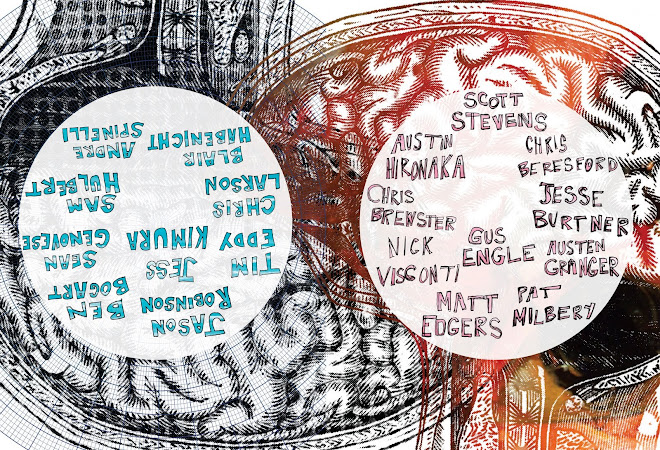 JASON
ROBINSON
BEN
BOGART
TIM
EDDY
JESS
KIMURA
SEAN
GENOVESE
CHRIS
LARSON
SAM
HULBERT
BLAIR
HABENICHT
ANDRE
SPINELLI
SCOTT
STEVENS
AUSTIN
HIRONAKA
CHRIS
BERESFORD
CHRIS
BREWSTER
JESSE
BURTNER
NICK
VISCONTI
GUS
ENGLE
AUSTEN
GRANGER
MATT
EDGERS
PAT
MILBERY